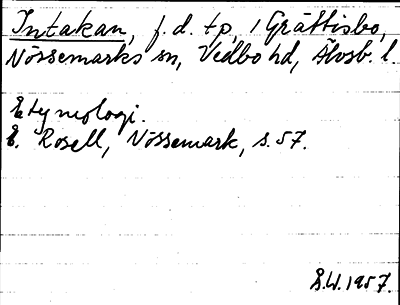 Intakan, f. d. tp, i Gråttisbo,
Nössemarks sn, Vedbo hd, Älvsb. l.
Etymologi.
E. Rosell, Nössemark, s. 57.
Å.W. 1957.